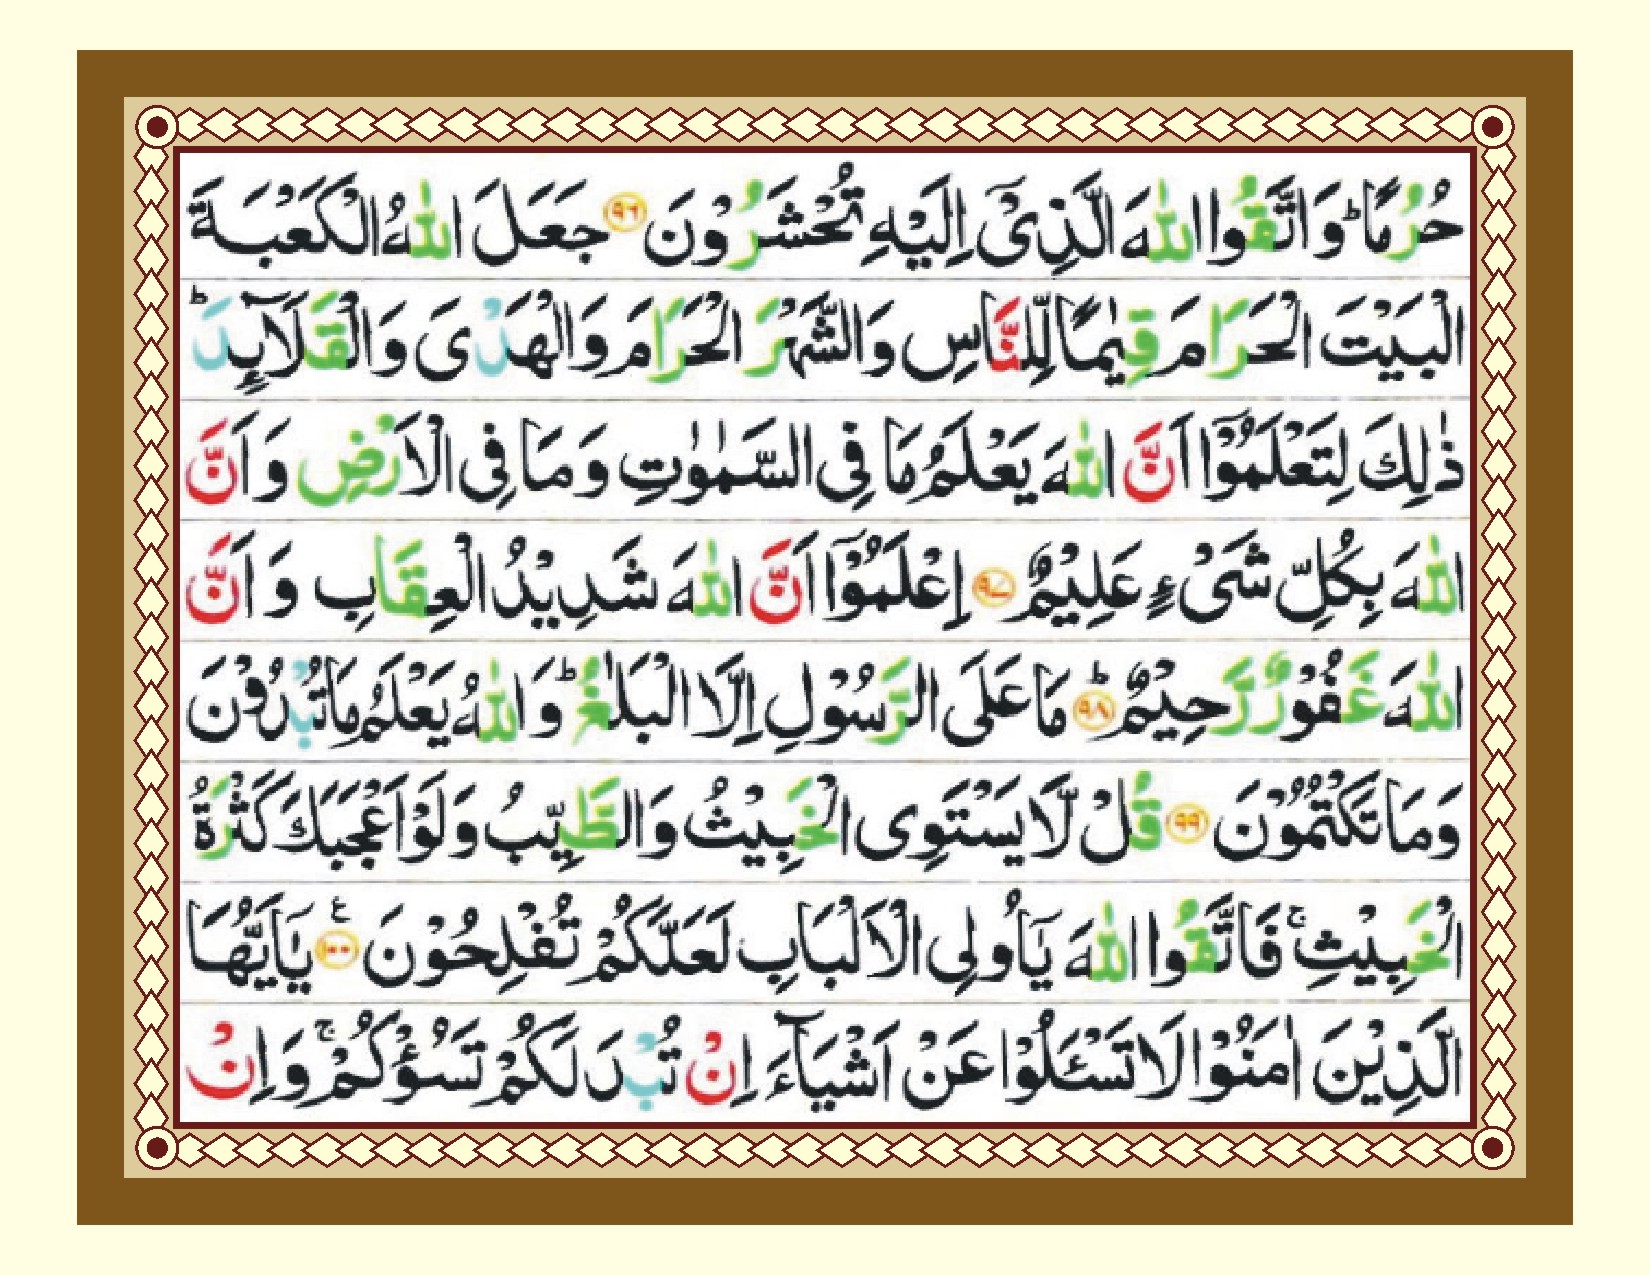 حُرُمًا ؕ وَ اتَّقُوا اللّٰهَ الَّذِیْۤ اِلَیْهِ تُحْشَرُوْنَ ﴿۹۶﴾ جَعَلَ اللّٰهُ الْكَعْبَةَ
الْبَیْتَ الْحَرَامَ قِیٰمًا لِّلنَّاسِ وَ الشَّهْرَ الْحَرَامَ وَ الْهَدْیَ وَ الْقَلَآىِٕدَ ؕ
ذٰلِكَ لِتَعْلَمُوْۤا اَنَّ اللّٰهَ یَعْلَمُ مَا فِی السَّمٰوٰتِ وَ مَا فِی الْاَرْضِ وَ اَنَّ
اللّٰهَ بِكُلِّ شَیْءٍ عَلِیْمٌ ﴿۹۷﴾ اِعْلَمُوْۤا اَنَّ اللّٰهَ شَدِیْدُ الْعِقَابِ وَ اَنَّ
اللّٰهَ غَفُوْرٌ رَّحِیْمٌ ﴿۹۸﴾ؕ مَا عَلَی الرَّسُوْلِ اِلَّا الْبَلٰغُ ؕ وَ اللّٰهُ یَعْلَمُ مَا تُبْدُوْنَ
وَ مَا تَكْتُمُوْنَ ﴿۹۹﴾ قُلْ لَّا یَسْتَوِی الْخَبِیْثُ وَ الطَّیِّبُ وَ لَوْ اَعْجَبَكَ كَثْرَةُ
الْخَبِیْثِ ۚ فَاتَّقُوا اللّٰهَ یٰۤاُولِی الْاَلْبَابِ لَعَلَّكُمْ تُفْلِحُوْنَ ﴿۱۰۰﴾ ع یٰۤاَیُّهَا
الَّذِیْنَ اٰمَنُوْا لَا تَسْـَٔلُوْا عَنْ اَشْیَآءَ اِنْ تُبْدَ لَكُمْ تَسُؤْكُمْ ۚ وَ اِنْ